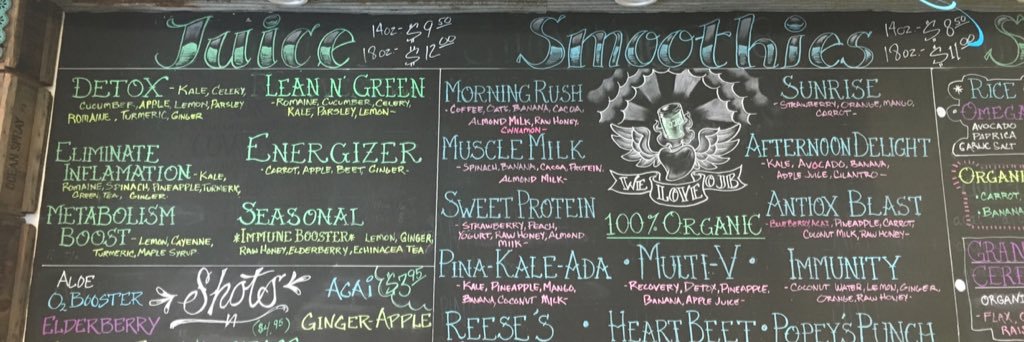 Juice 14oz- $9.50
18oz- $12.00
DETOX - KALE, CELERY,
CUCUMBER, APPLE, LEMON, PARSLEY
ROMAINE, TURMERIC, GINGER
LEAN N' GREEN
- ROMAINE, CUCUMBER, CELERY,
KALE, PARSLEY, LEMON-
ELIMINATE
INFLAMATION - KALE,
ROMAINE, SPINACH, PINEAPPLE, TURMERIC,
GREEN TEA, GINGER
ENERGIZER
- CARROT, APPLE, BEET, GINGER-
METABOLISM
BOOST - LEMON, CAYENNE,
TURMERIC, MAPLE SYRUP
SEASONAL
*IMMUNE BOOSTER* LEMON, GINGER,
RAW HONEY, ELDERBERRY, ECHINACEA TEA
Shots
ALOE
O2 BOOSTER
ELDERBERRY
($4.95)
ACAI $7.95
GINGER-APPLE
Smoothies 14oz- $8.50
18oz- $11.00
MORNING RUSH
- COFFEE, OATS, BANANA, CACOA,
ALMOND MILK, RAW HONEY,
CINNAMON-
MUSCLE MILK
- SPINACH, BANANA, COCOA, PROTEIN,
ALMOND MILK-
SWEET PROTEIN
- STRAWBERRY, PEACH,
YOGURT, RAW HONEY, ALMOND
MILK-
WE LOVE YO JIB
100% ORGANIC
SUNRISE
- STRAWBERRY, ORANGE, MANGO,
CARROT-
AFTERNOON DELIGHT
- KALE, AVOCADO, BANANA,
APPLE JUICE, CILANTRO-
ANTIOX BLAST
- BLUEBERRY, ACAI, PINEAPPLE, CARROT,
COCONUT MILK, RAW HONEY-
PINA-KALE-ADA
- KALE, PINEAPPLE, MANGO,
BANANA, COCONUT MILK-
MULTI-V
- RECOVERY, DETOX, PINEAPPLE,
BANANA, APPLE JUICE-
IMMUNITY
- COCONUT WATER, LEMON, GINGER,
ORANGE, RAW HONEY-
REESE'S · HEART BEET · POPEY'S PUNCH
S
RICE
OMEGA
AVOCADO
PAPRICA
GARLIC SALT
ORGANI
· CARROT,
· BANANA
GRAN
CERE
ORGANI
- FLAX,
RAIS
OCEAN SPRAY